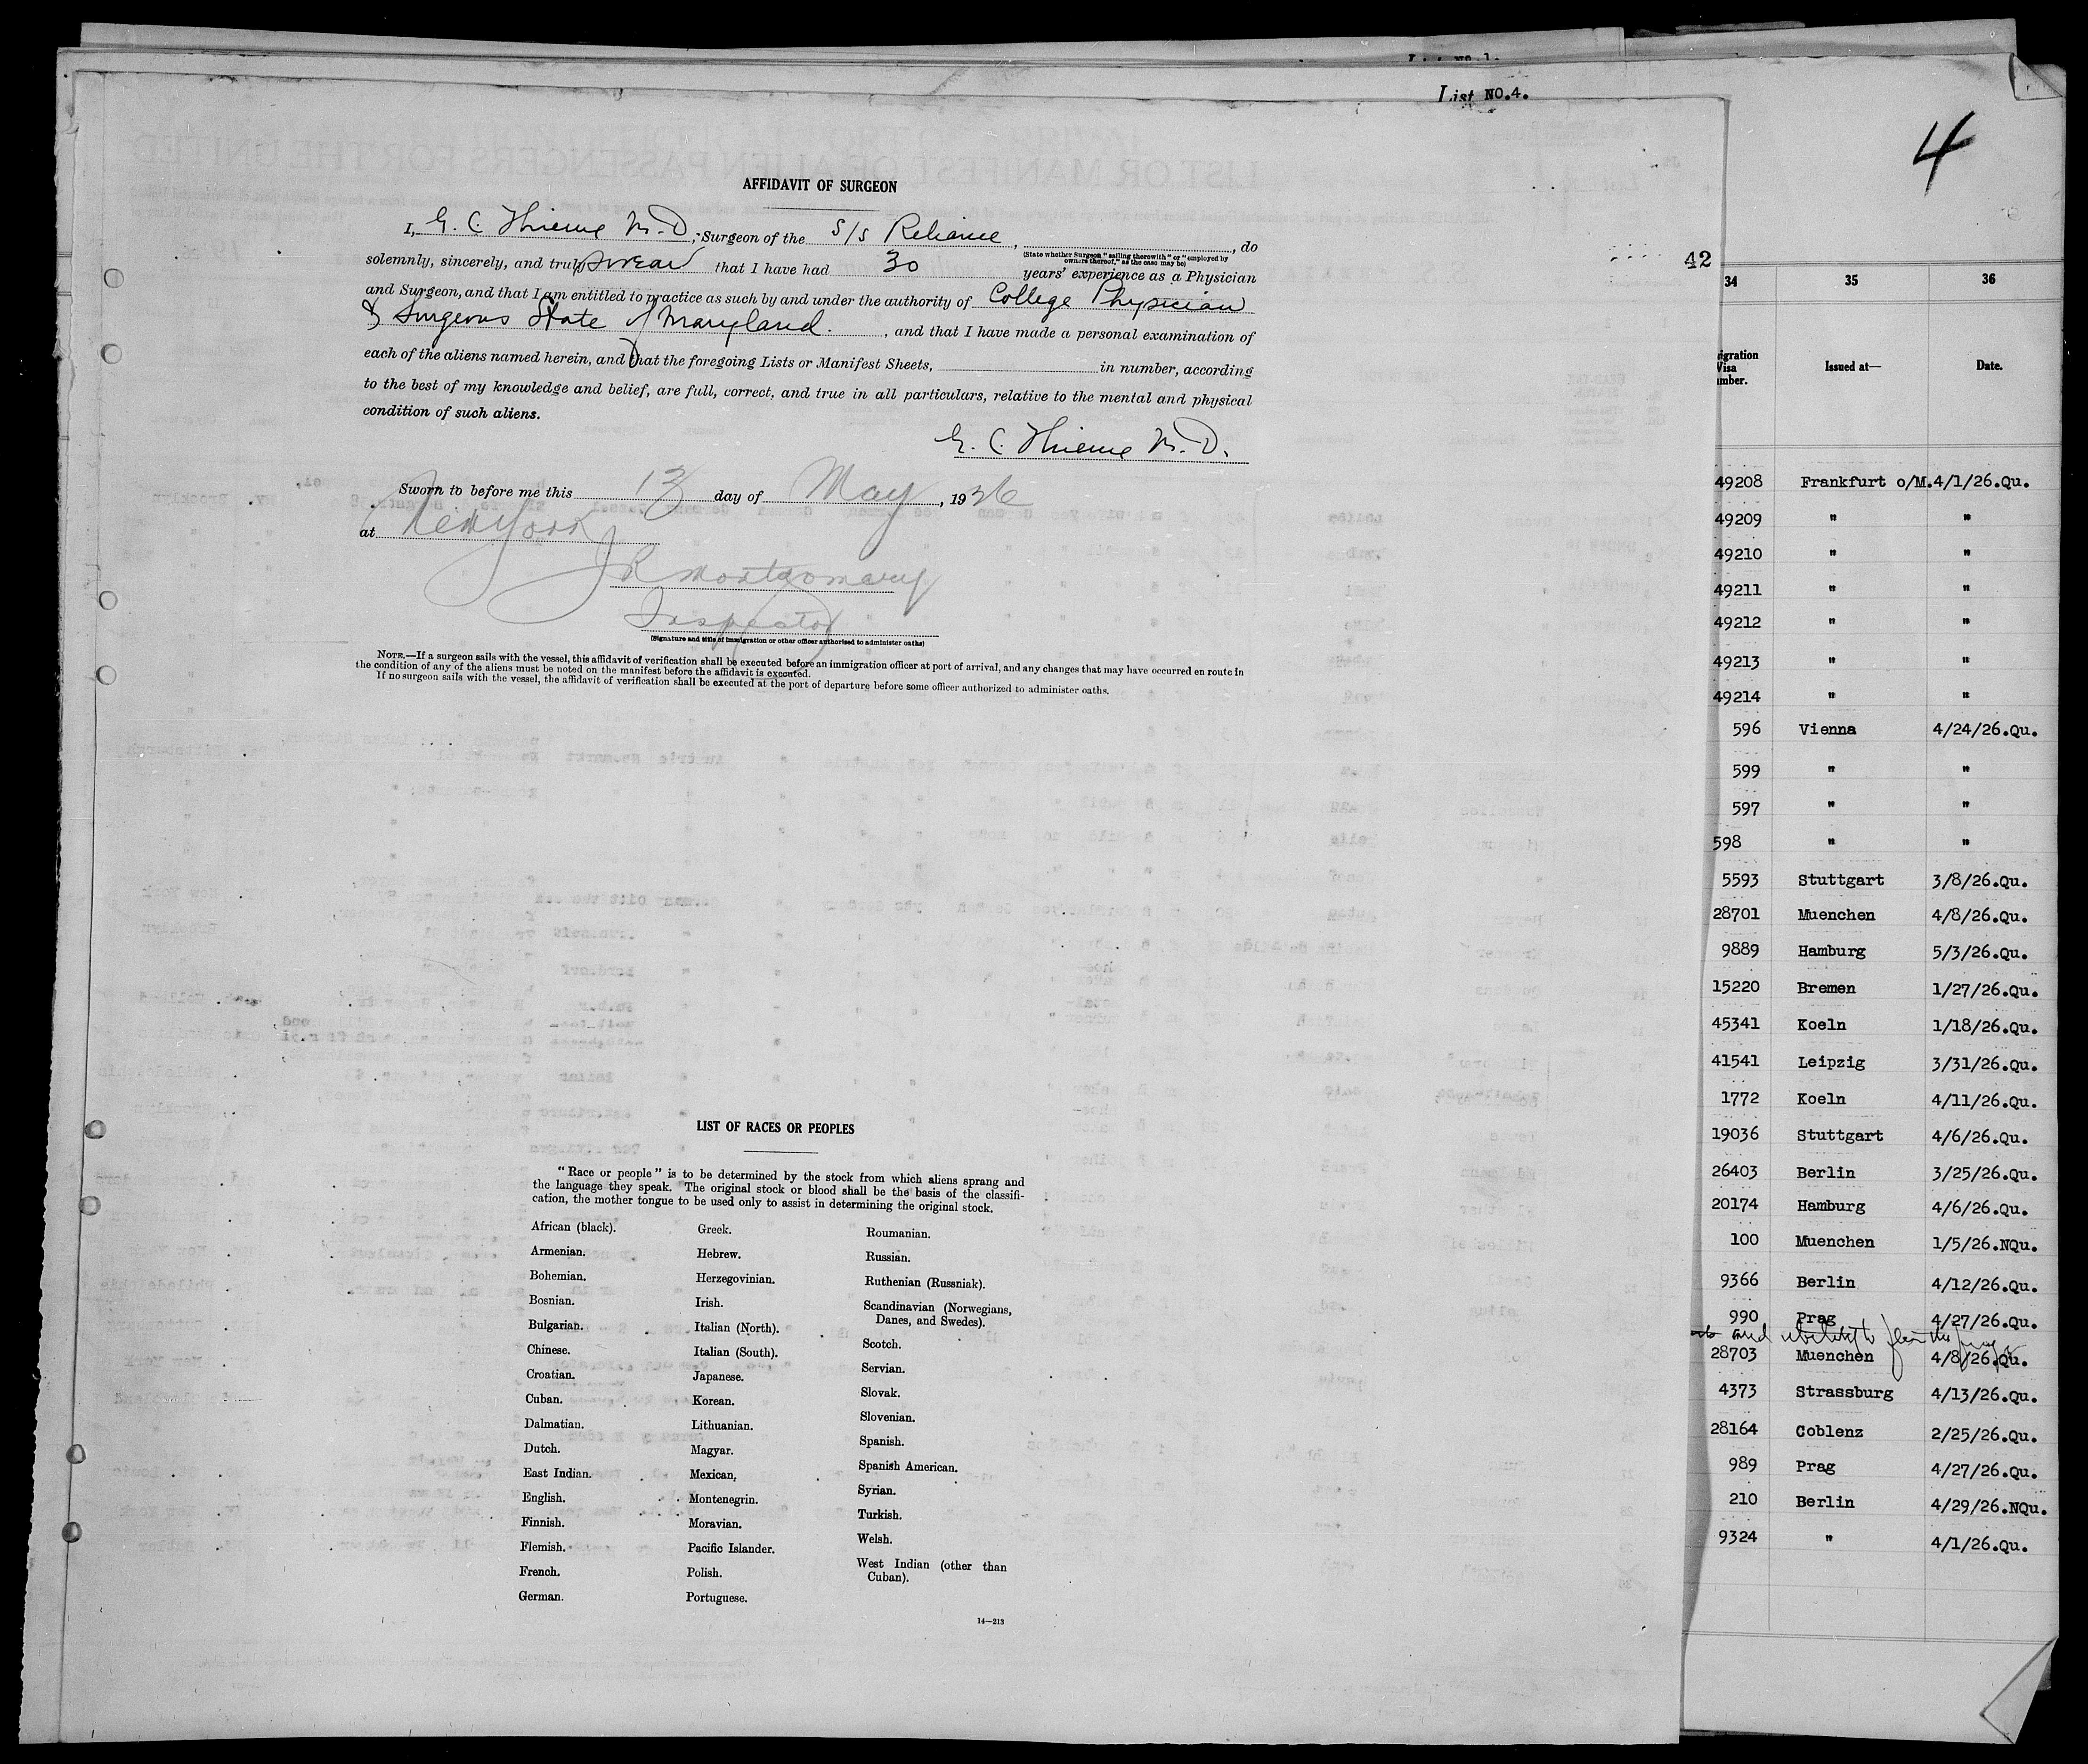 List NO.4.
4
AFFIDAVIT OF SURGEON
I, E. C. Thieme M.D., Surgeon of the S/S Reliance, , do
(State whether Surgeon "sailing therewith" or "employed by
owners thereof," as the case may be)
solemnly, sincerely, and truly swear that I have had 30 years' experience as a Physician
and Surgeon, and that I am entitled to practice as such by and under the authority of College Physician
& Surgeons State of Maryland. , and that I have made a personal examination of
each of the aliens named herein, and that the foregoing Lists or Manifest Sheets, in number, according
to the best of my knowledge and belief, are full, correct, and true in all particulars, relative to the mental and physical
condition of such aliens.
E. C. Thieme M.D.
Sworn to before me this 13 day of May, 1926
at New York
J R Montgomery
Inspector
(Signature and title of immigration or other officer authorized to administer oaths)
NOTE.—If a surgeon sails with the vessel, this affidavit of verification shall be executed before an immigration officer at port of arrival, and any changes that may have occurred en route in
the condition of any of the aliens must be noted on the manifest before the affidavit is executed.
If no surgeon sails with the vessel, the affidavit of verification shall be executed at the port of departure before some officer authorized to administer oaths.
LIST OF RACES OR PEOPLES
"Race or people" is to be determined by the stock from which aliens sprang and
the language they speak. The original stock or blood shall be the basis of the classifi-
cation, the mother tongue to be used only to assist in determining the original stock.
African (black).
Armenian.
Bohemian.
Bosnian.
Bulgarian.
Chinese.
Croatian.
Cuban.
Dalmatian.
Dutch.
East Indian.
English.
Finnish.
Flemish.
French.
German.
Greek.
Hebrew.
Herzegovinian.
Irish.
Italian (North).
Italian (South).
Japanese.
Korean.
Lithuanian.
Magyar.
Mexican.
Montenegrin.
Moravian.
Pacific Islander.
Polish.
Portuguese.
Roumanian.
Russian.
Ruthenian (Russniak).
Scandinavian (Norwegians,
Danes, and Swedes).
Scotch.
Servian.
Slovak.
Slovenian.
Spanish.
Spanish American.
Syrian.
Turkish.
Welsh.
West Indian (other than
Cuban).
14—213
42
34 35 36
igration
Visa
mber.
Issued at—
Date.
49208 Frankfurt o/M. 4/1/26.Qu.
49209 " "
49210 " "
49211 " "
49212 " "
49213 " "
49214 " "
596 Vienna 4/24/26.Qu.
599 " "
597 " "
598 " "
5593 Stuttgart 3/8/26.Qu.
28701 Muenchen 4/8/26.Qu.
9889 Hamburg 5/3/26.Qu.
15220 Bremen 1/27/26.Qu.
45341 Koeln 1/18/26.Qu.
41541 Leipzig 3/31/26.Qu.
1772 Koeln 4/11/26.Qu.
19036 Stuttgart 4/6/26.Qu.
26403 Berlin 3/25/26.Qu.
20174 Hamburg 4/6/26.Qu.
100 Muenchen 1/5/26.NQu.
9366 Berlin 4/12/26.Qu.
990 Prag 4/27/26.Qu.
and
28703 Muenchen 4/8/26.Qu.
4373 Strassburg 4/13/26.Qu.
28164 Coblenz 2/25/26.Qu.
989 Prag 4/27/26.Qu.
210 Berlin 4/29/26.NQu.
9324 " 4/1/26.Qu.